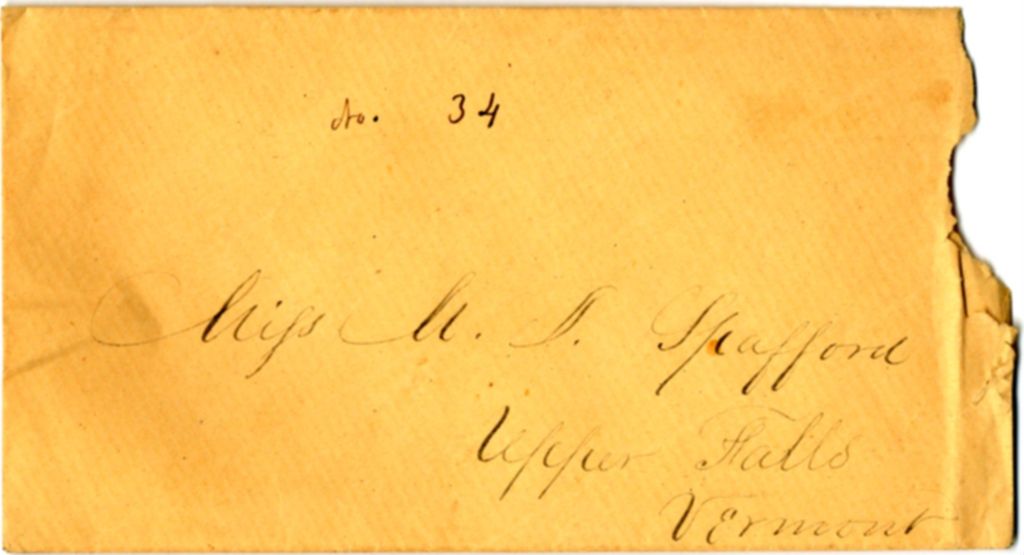 No. 34
Miss M. J. Spafford
Upper Falls
Vermont